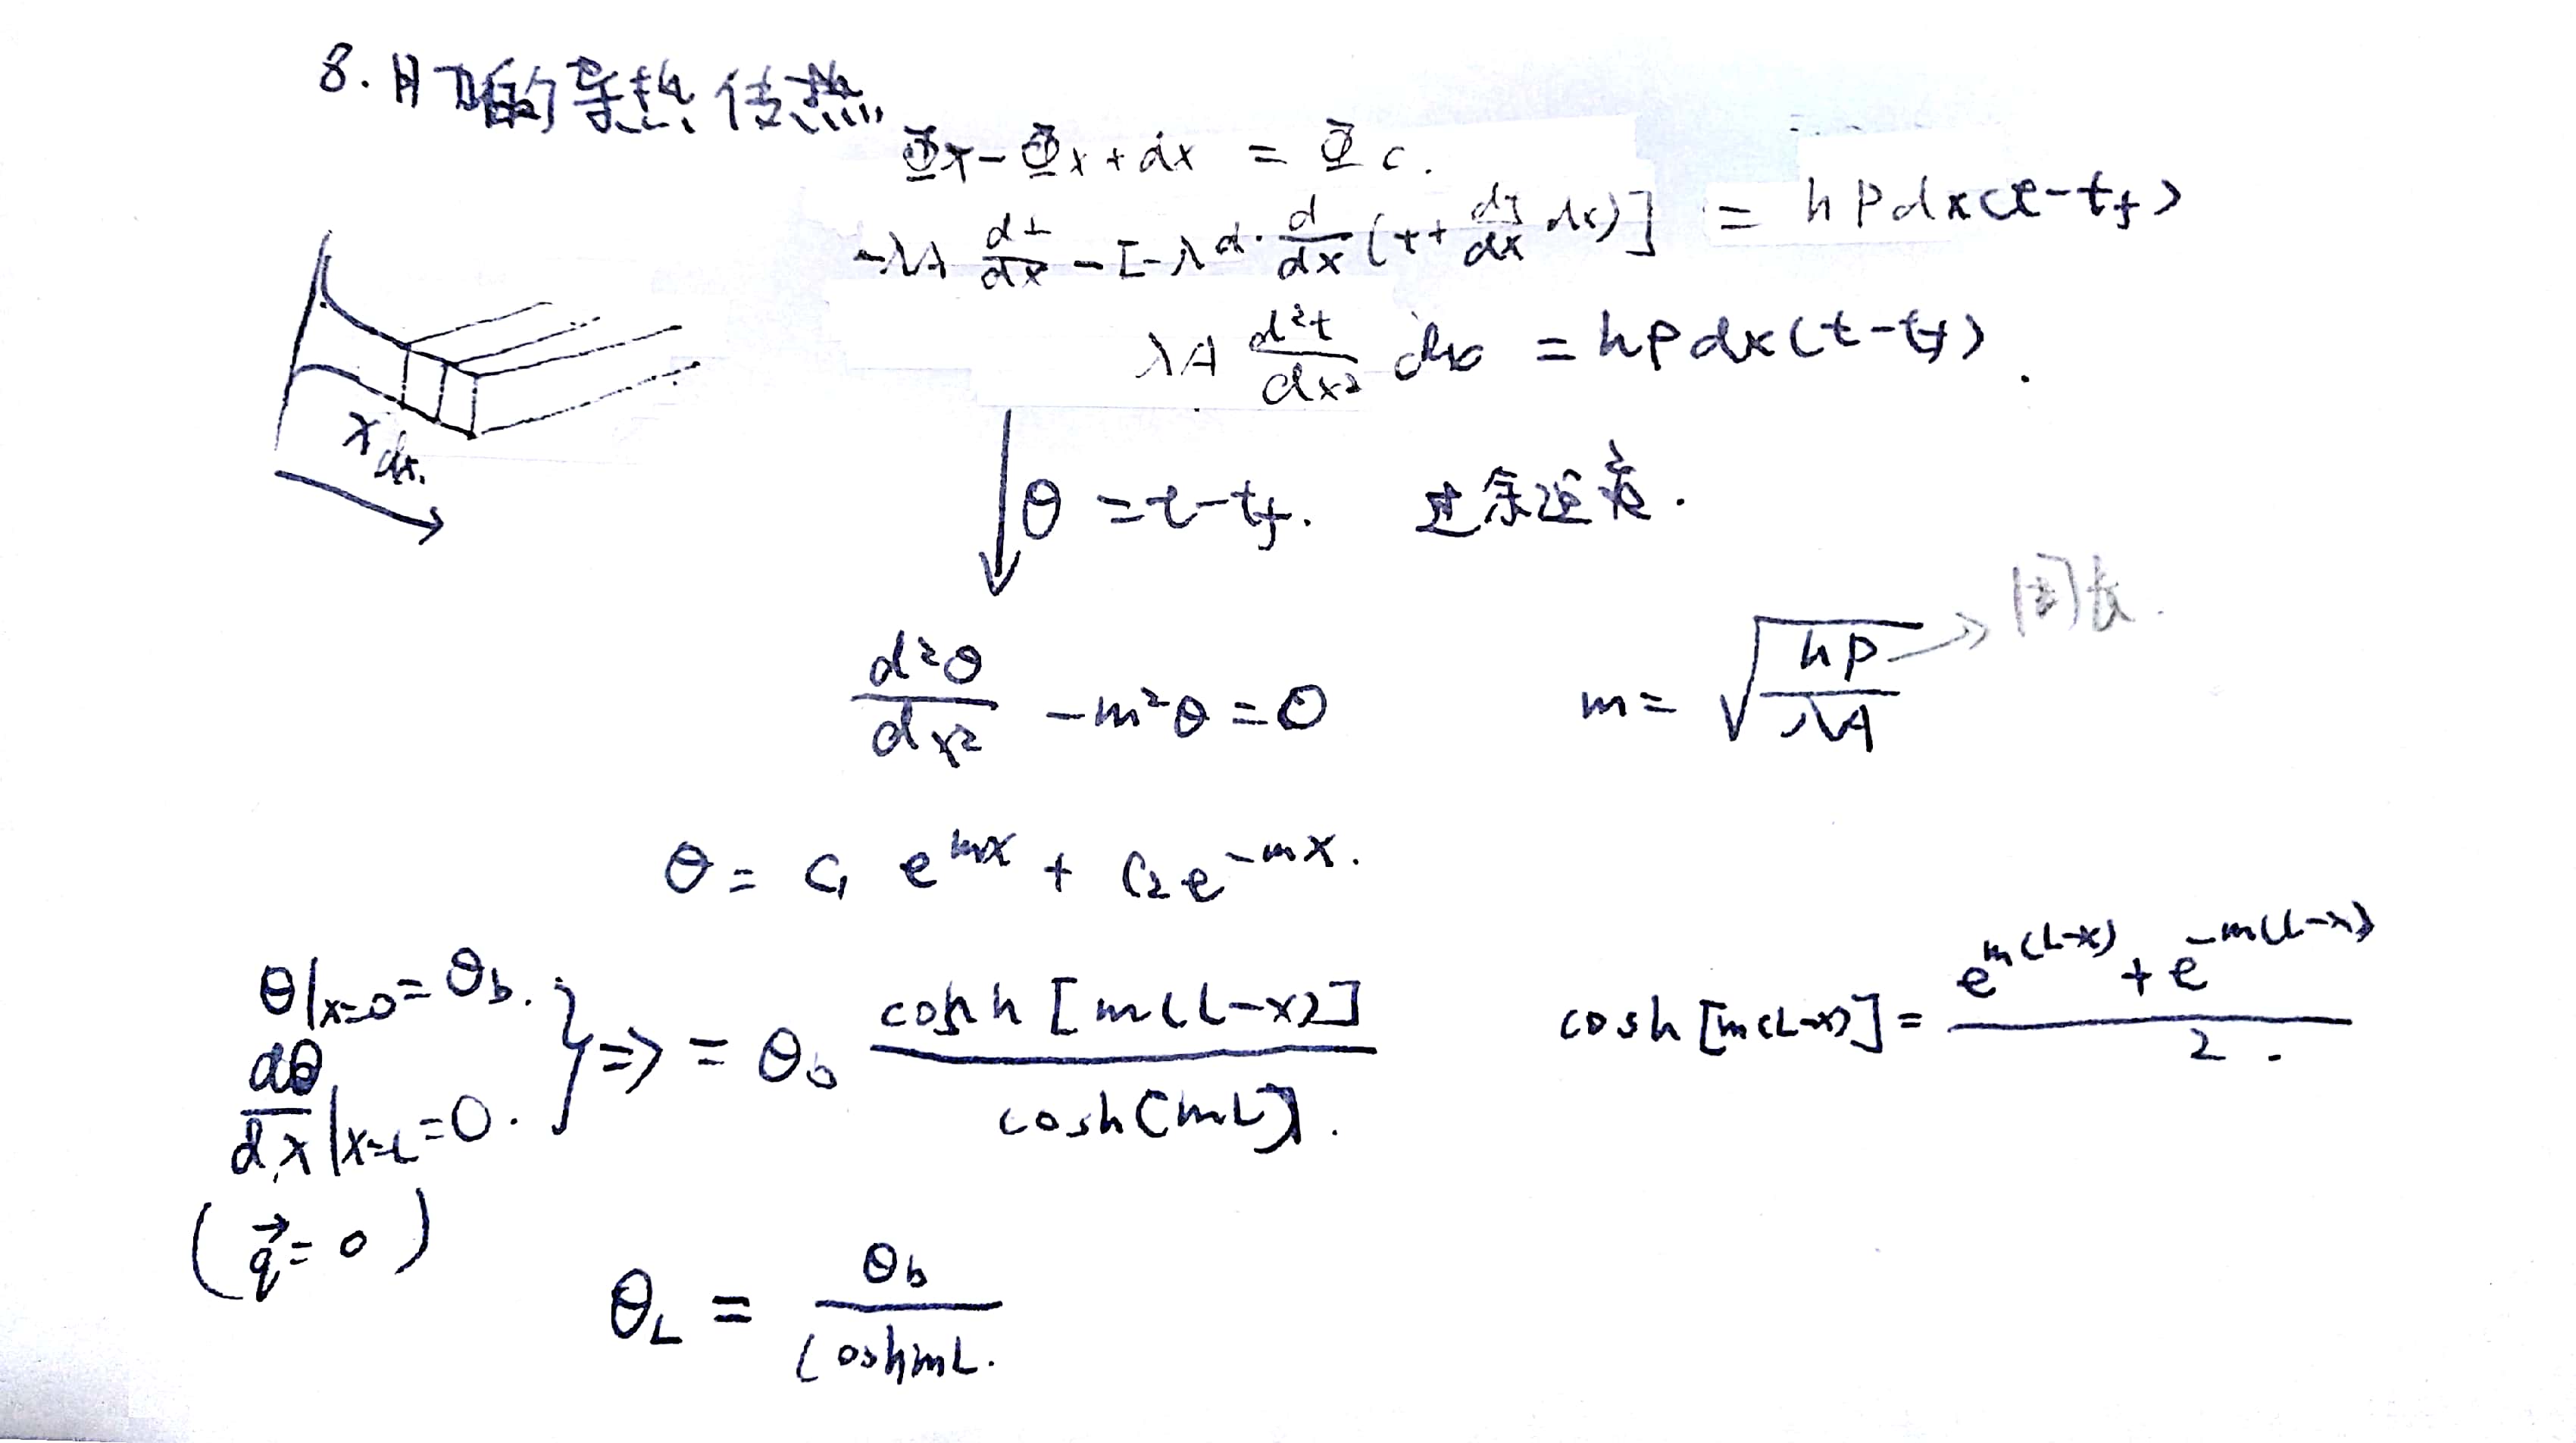 8. 肋的导热传热
Φx - Φx+dx = Φc.
-λA dt/dx - [-λA d/dx (t + dt/dx dx)] = hPdx(t-tf)
λA d²t/dx² dx = hPdx(t-tf).
x dx.
θ = t-tf. 过余温度.
d²θ/dx² - m²θ = 0
m = √(hP/λA) → 周长.
θ = C₁ e^mx + C₂e^-mx.
θ|x=0 = θb.
dθ/dx |x=L = 0.
⇒ = θb cosh[m(L-x)] / cosh(mL).
cosh[m(L-x)] = (e^m(L-x) + e^-m(L-x)) / 2.
(q⃗ = 0)
θL = θb / coshmL.